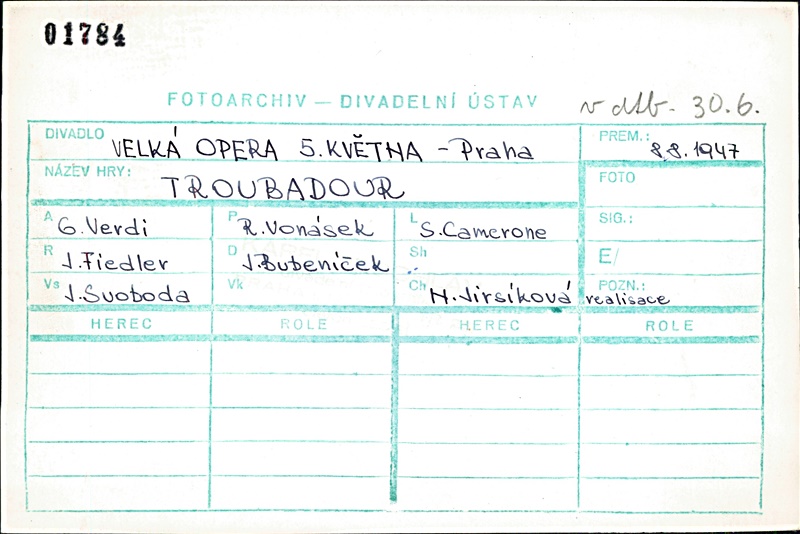 01784
FOTOARCHIV — DIVADELNÍ ÚSTAV
v dtb - 30.6.
DIVADLO VELKÁ OPERA 5. KVĚTNA - Praha
PREM.: 8.8.1947
NÁZEV HRY: TROUBADOUR
FOTO
A G. Verdi
P R. Vonásek
L S. Camerone
SIG.:
R J. Fiedler
D J. Bubeníček
Sh
E/
Vs J. Svoboda
Vk
Ch N. Jirsíková
POZN.: realisace
HEREC ROLE HEREC ROLE